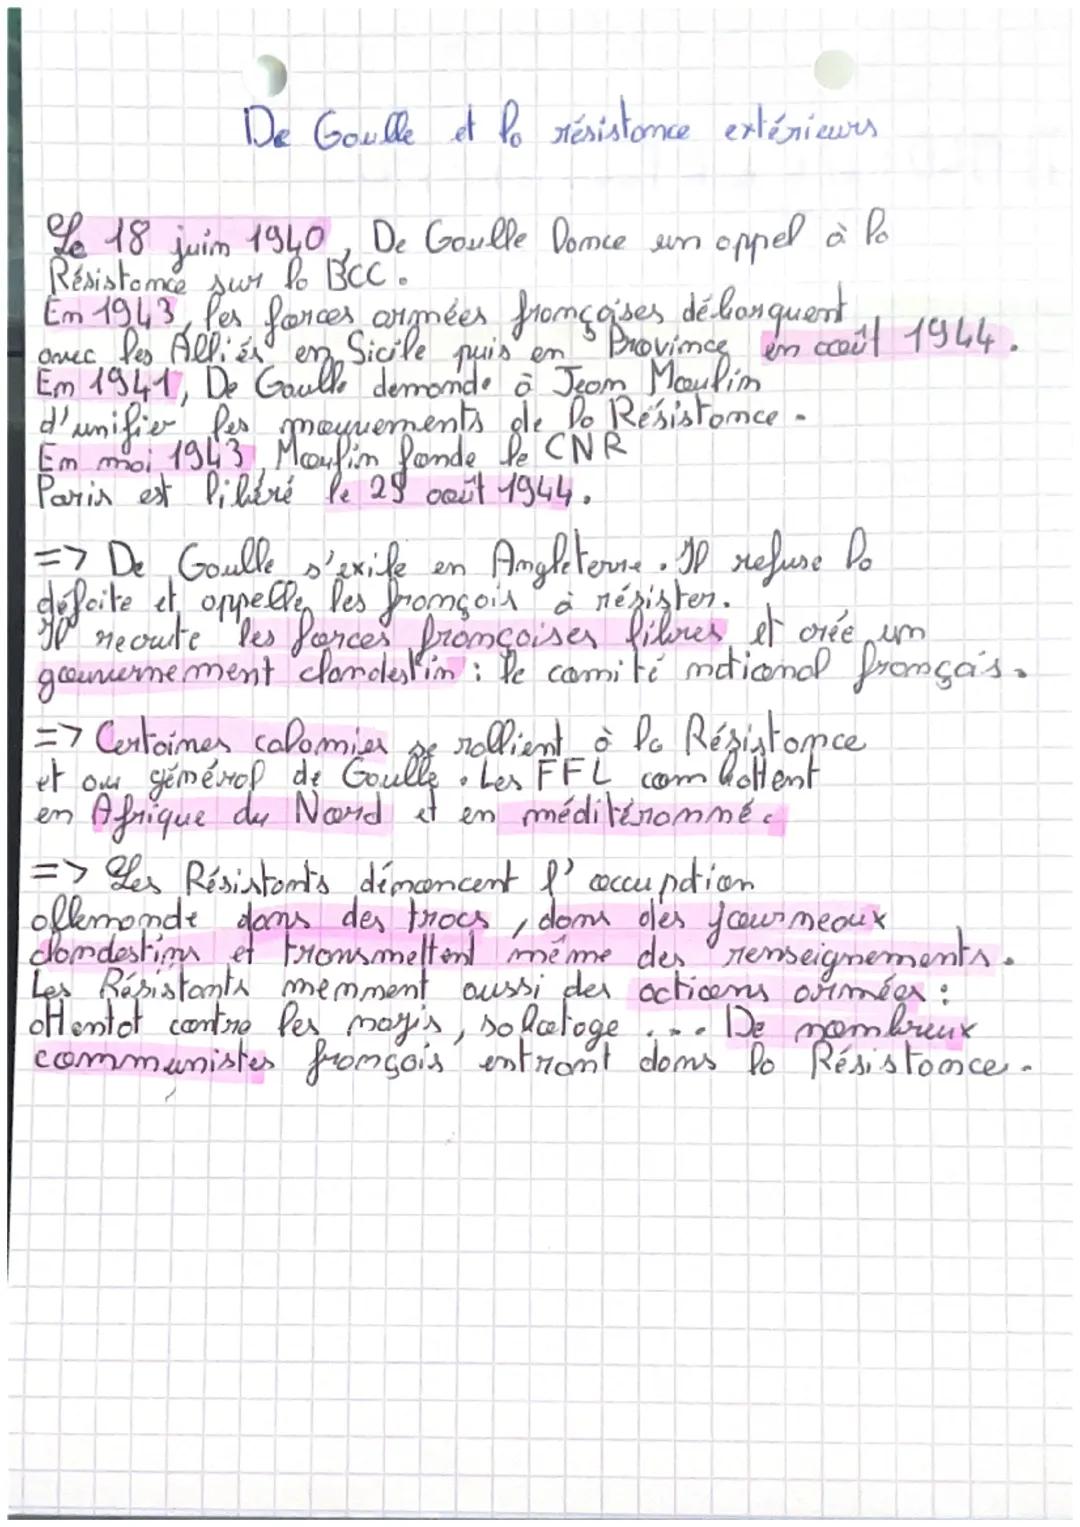 De Gaulle et la résistance extérieurs
Le 18 juin 1940, De Gaulle lance un appel à la
Résistance sur la BCC.
En 1943, les forces armées françaises débarquent
avec les Alliés en Sicile puis en Province en août 1944.
En 1941, De Gaulle demande à Jean Moulin
d'unifier les mouvements de la Résistance.
En mai 1943, Moulin fonde le CNR
Paris est libéré le 25 août 1944.
=> De Gaulle s'exile en Angleterre. Il refuse la
défaite et appelle les français à résister.
Il recrute les forces françaises libres et crée un
gouvernement clandestin : le comité national français.
=> Certaines colonies se rallient à la Résistance
et au général de Gaulle. Les FFL combattent
en Afrique du Nord et en méditéranné.
=> Les Résistants dénoncent l'occupation
allemande dans des tracs, dans des journeaux
clandestins et transmettent même des renseignements.
Les Résistants mennent aussi des actions armées :
attentat contre les nazis, sabotage .... De nombreux
communistes français entrant dans la Résistance.